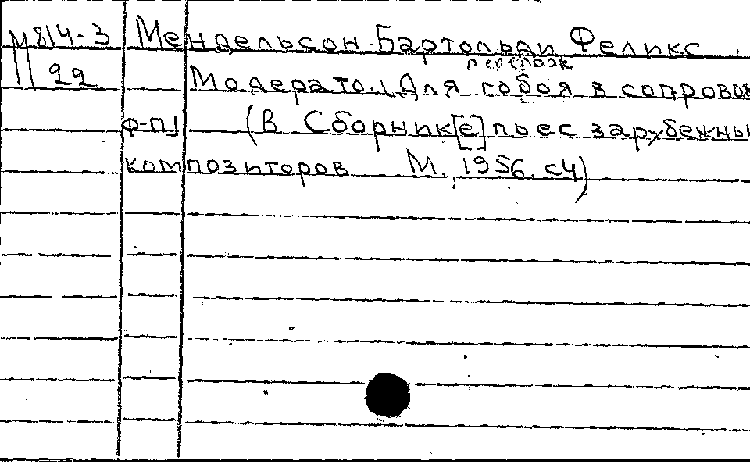 М814-3 Мендельсон-Бартольди Феликс.
перелож
11 22 Модерато. [Для гобоя в сопровож
ф-п] (В Сборник[е] пьес зарубежны
композиторов М. 1956. с4)